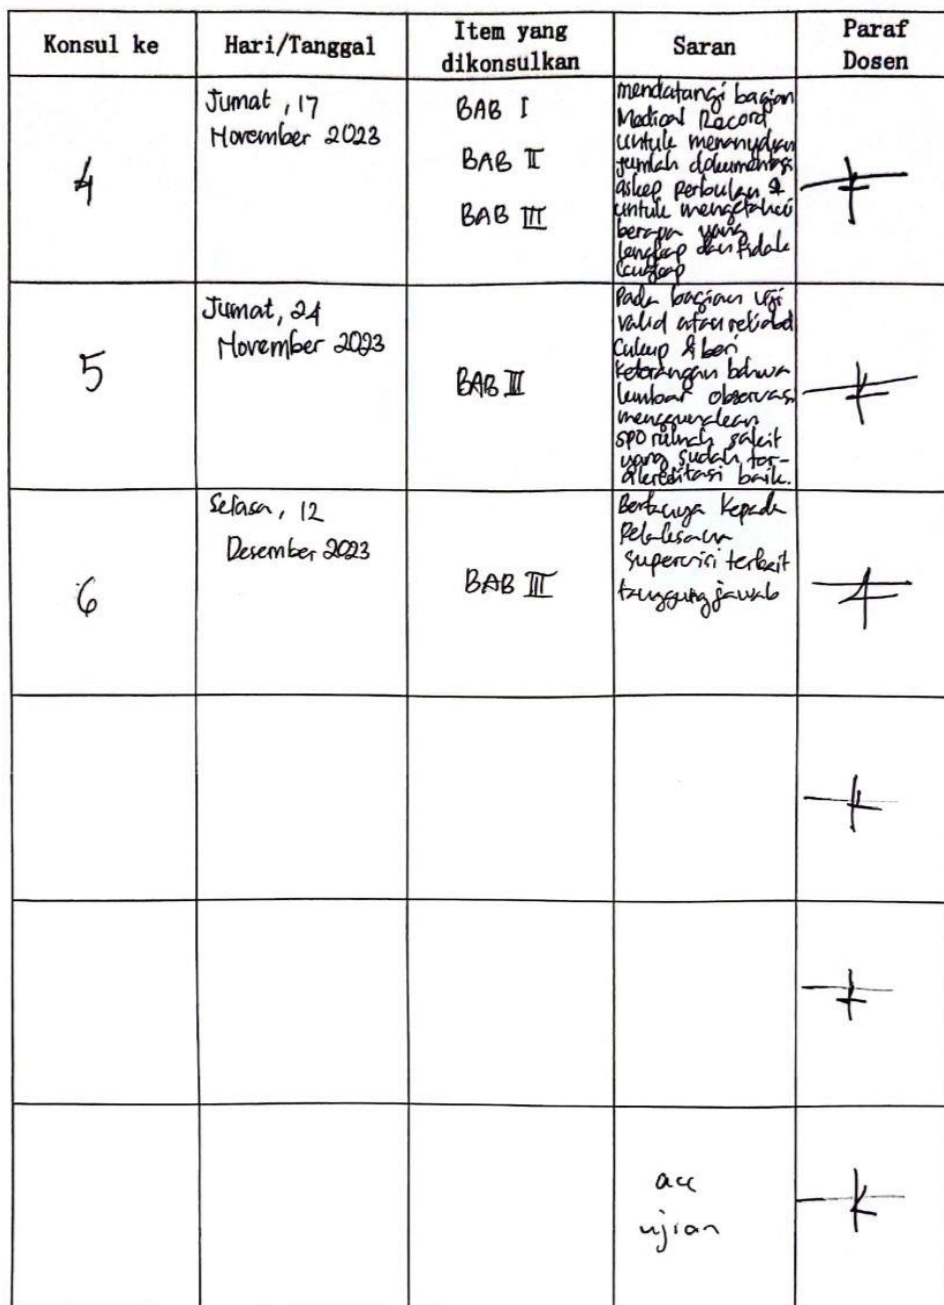 Konsul ke
Hari/Tanggal
Item yang
dikonsulkan
Saran
Paraf
Dosen
4
Jumat, 17
November 2023
BAB I
BAB II
BAB III
mendatangi bagian
Medical Record
untuk menanyakan
jumlah dokumentasi
askep perbulan &
untuk mengetahui
berapa yang
lengkap dan tidak
lengkap
5
Jumat, 24
November 2023
BAB III
Pada bagian Uji
valid atau reliabel
Cukup di beri
keterangan bahwa
lembar observasi
menggunakan
SPO rumah sakit
yang sudah ter-
akreditasi baik.
6
Selasa, 12
Desember 2023
BAB III
Bertanya kepada
Pelaksana
supervisi terkait
tanggung jawab
acc
ujian